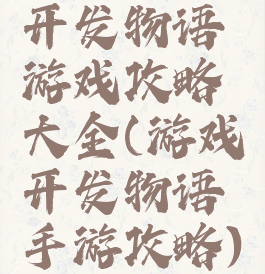 开发物语
游戏攻略
大全(游戏
开发物语
手游攻略)